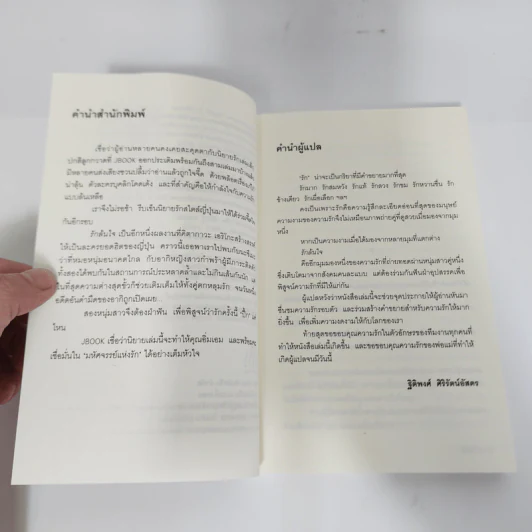 คำนำสำนักพิมพ์
เชื่อว่าผู้อ่านหลายคนคงเคยสะดุดตากับนิยายรัก
ปกสีลูกกวาดที่ JBOOK ออกประเดิมพร้อมกันถึงสามเล่ม
มีหลายคนส่งเสียงชวนปลื้มว่าอ่านแล้วถูกใจจี๊ด ด้วยพล็อตเรื่อง
น่าลุ้น ตัวละครบุคลิกโดดเด้ง และที่สำคัญคือให้กำลังใจกับความรัก
แบบล้นเหลือ
เราจึงไม่รอช้า รีบเข็นนิยายรักสไตล์ญี่ปุ่นมาให้ได้
กันอีกรอบ
รักต้นใจ เป็นอีกหนึ่งผลงานที่คิตากาวะ เอริโกะ
ให้เป็นละครยอดฮิตของญี่ปุ่น คราวนี้เธอพาเราไปพบกับ
ว่าที่หมอหนุ่มอนาคตไกล กับอากิหญิงสาวกำพร้าผู้มีภาระ
ทั้งสองได้พบกันในสถานการณ์ประหลาดล้ำและไม่กินเส้นกันนัก
ในที่สุดความต่างสุดขั้วก็ช่วยเติมเต็มให้ทั้งคู่ตกหลุมรัก จนวันหนึ่ง
อดีตอันดำมืดของอากิถูกเปิดเผย
สองหนุ่มสาวจึงต้องฝ่าฟัน เพื่อพิสูจน์ว่ารักครั้งนี้
ไหน
JBOOK เชื่อว่านิยายเล่มนี้จะทำให้คุณอิ่มเอม และพร้อม
เชื่อมั่นใน "มหัศจรรย์แห่งรัก" ได้อย่างเต็มหัวใจ
คำนำผู้แปล
'รัก' น่าจะเป็นกริยาที่มีคำขยายมากที่สุด
รักมาก รักสมหวัง รักแท้ รักลวง รักขม รักหวานชื่น รัก
ข้างเดียว รักเผื่อเลือก ฯลฯ
คงเป็นเพราะรักคือความรู้สึกละเอียดอ่อนที่สุดของมนุษย์
ความงามของความรักจึงไม่เหมือนภาพถ่ายคู่ที่ดูสวยเมื่อมองจากมุม
หนึ่ง
หากเป็นความงามเมื่อได้มองจากหลายมุมที่แตกต่าง
รักต้นใจ
คืออีกมุมมองหนึ่งของความรักที่ถ่ายทอดผ่านหนุ่มสาวคู่หนึ่ง
ซึ่งเติบโตมาจากสังคมคนละแบบ แต่ต้องร่วมกันฟันฝ่าอุปสรรคเพื่อ
พิสูจน์ความรักที่มีให้แก่กัน
ผู้แปลหวังว่าหนังสือเล่มนี้จะช่วยจุดประกายให้ผู้อ่านหันมา
ชื่นชมความรักรอบตัว และร่วมสร้างคำขยายสำหรับความรักให้มาก
ยิ่งขึ้น เพื่อเพิ่มความงดงามให้กับโลกของเรา
ท้ายสุดขอขอบคุณความรักในตัวอักษรของทีมงานทุกคนที่
ทำให้หนังสือเล่มนี้เกิดขึ้น และขอขอบคุณความรักของพ่อแม่ที่ทำให้
เกิดผู้แปลจนมีวันนี้
ฐิติพงศ์ ศิริรัตน์อัสดร